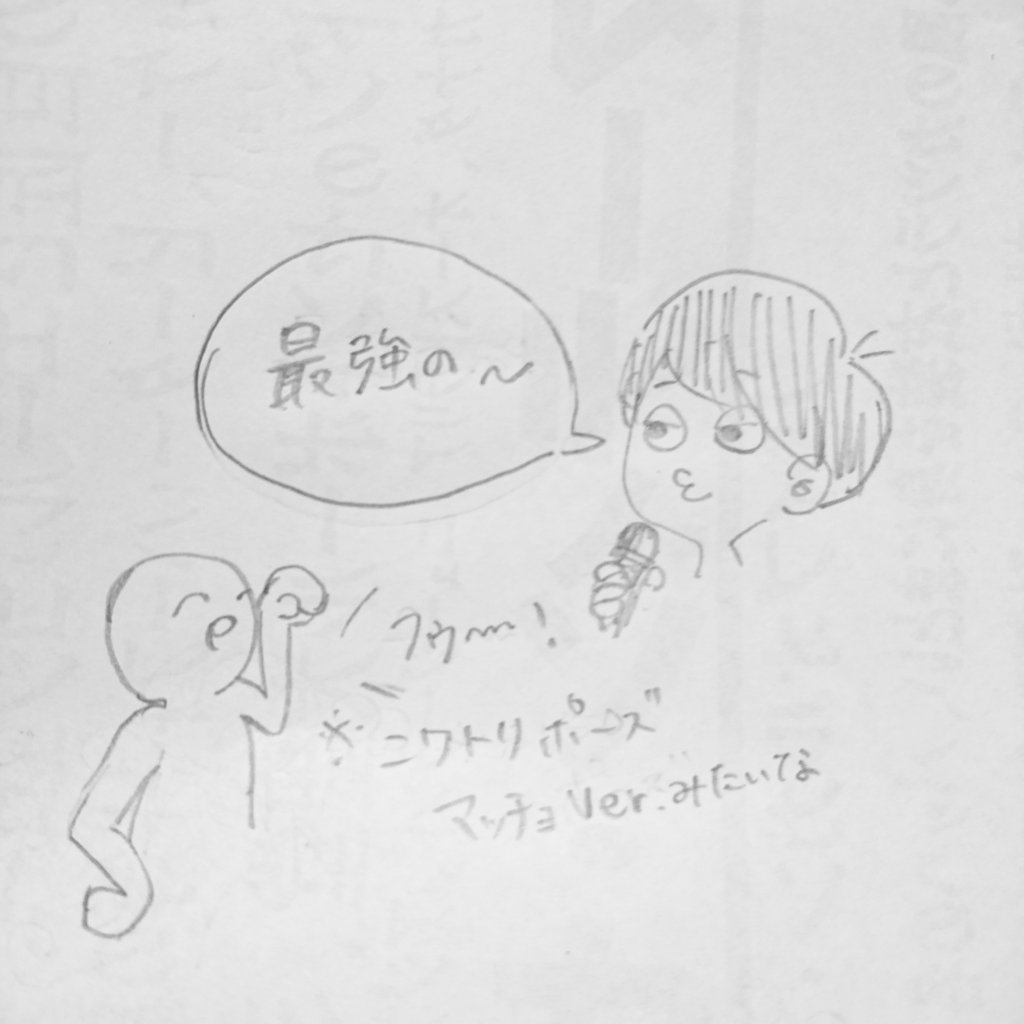 最強の〜
フゥ〜〜!
※ニワトリポーズ
マッチョVer.みたいな